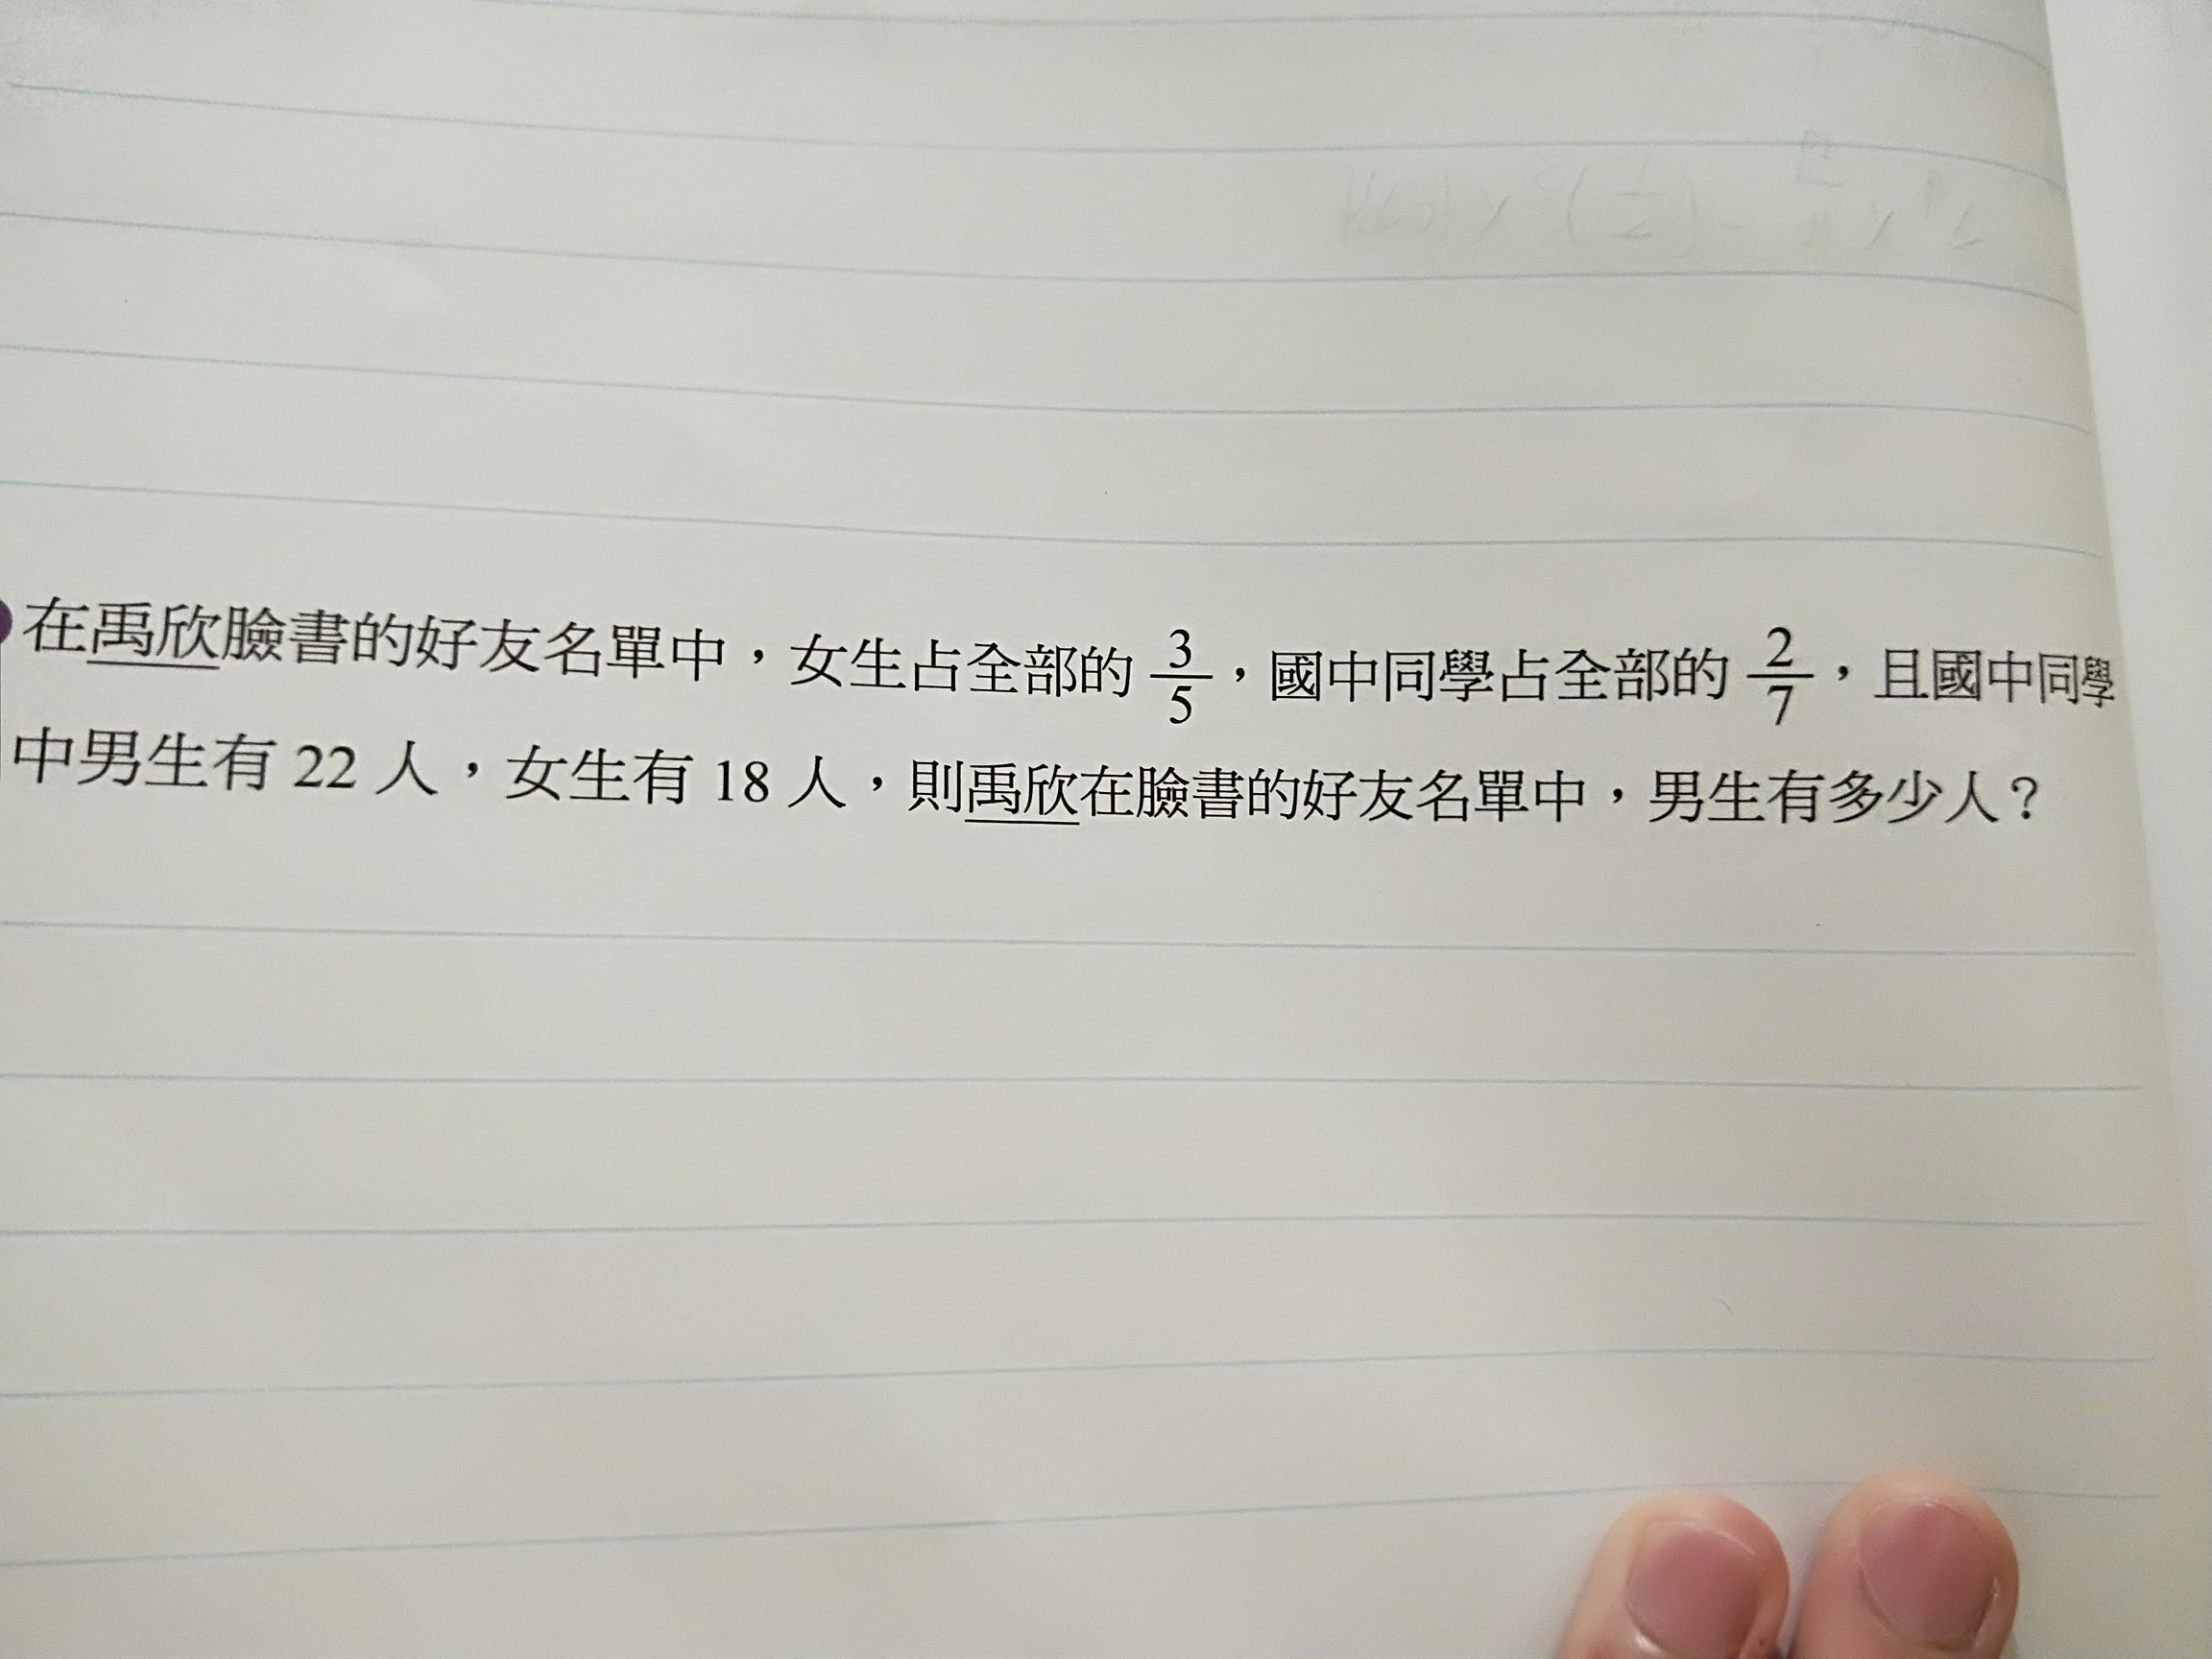 在禹欣臉書的好友名單中，女生占全部的 3/5，國中同學占全部的 2/7，且國中同學
中男生有 22 人，女生有 18 人，則禹欣在臉書的好友名單中，男生有多少人？